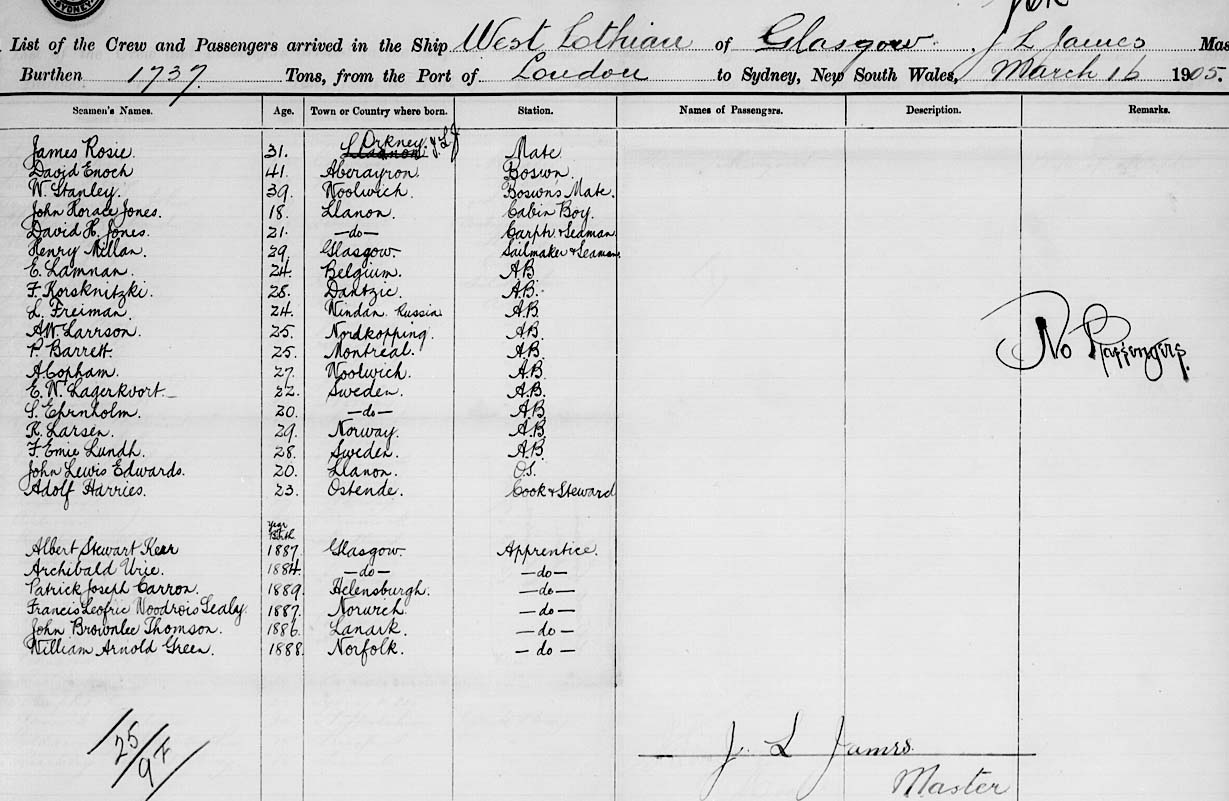 SYDNEY
List of the Crew and Passengers arrived in the Ship West Lothian of Glasgow, J L James Mas
Burthen 1737 Tons, from the Port of London to Sydney, New South Wales, March 16 1905.
Seamen's Names. Age. Town or Country where born. Station. Names of Passengers. Description. Remarks.
James Rosie. 31. Orkney. J. L. J Mate
David Enoch 41. Aberayron. Boswn.
W. Stanley. 39. Woolwich. Boswn's Mate.
John Horace Jones. 18. Llanon. Cabin Boy.
David H. Jones. 21. —do— Carptr & Seaman
Henry Millan. 29. Glasgow. Sailmaker & Seaman
E. Lamnan. 24. Belgium. A.B.
F. Korsknitzki. 28. Dantzic. A.B.
L. Freiman. 24. Windan. Russia A.B
A.W. Larrson. 25. Nordkopping. A.B.
P. Barrett. 25. Montreal. A.B.
A. Copham. 27. Woolwich. A.B.
E. W. Lagerkvort. 22. Sweden. A.B.
S. Ehrnholm. 20. —do— A.B.
K. Larsen. 29. Norway. A.B.
F. Emie Lundh. 28. Sweden. A.B.
John Lewis Edwards. 20. Llanon. O.S.
Adolf Harries. 23. Ostende. Cook & Steward
No Passengers.
year
Birth
Albert Stewart Kerr 1887. Glasgow. Apprentice.
Archibald Urie. 1884. —do— —do—
Patrick Joseph Carron. 1889. Helensburgh. —do—
Francis Leofric Woodrois Sealy. 1887. Norwich. —do—
John Brownlee Thomson. 1886. Lanark. —do—
William Arnold Green. 1888. Norfolk. —do—
25
9
J. L James.
Master